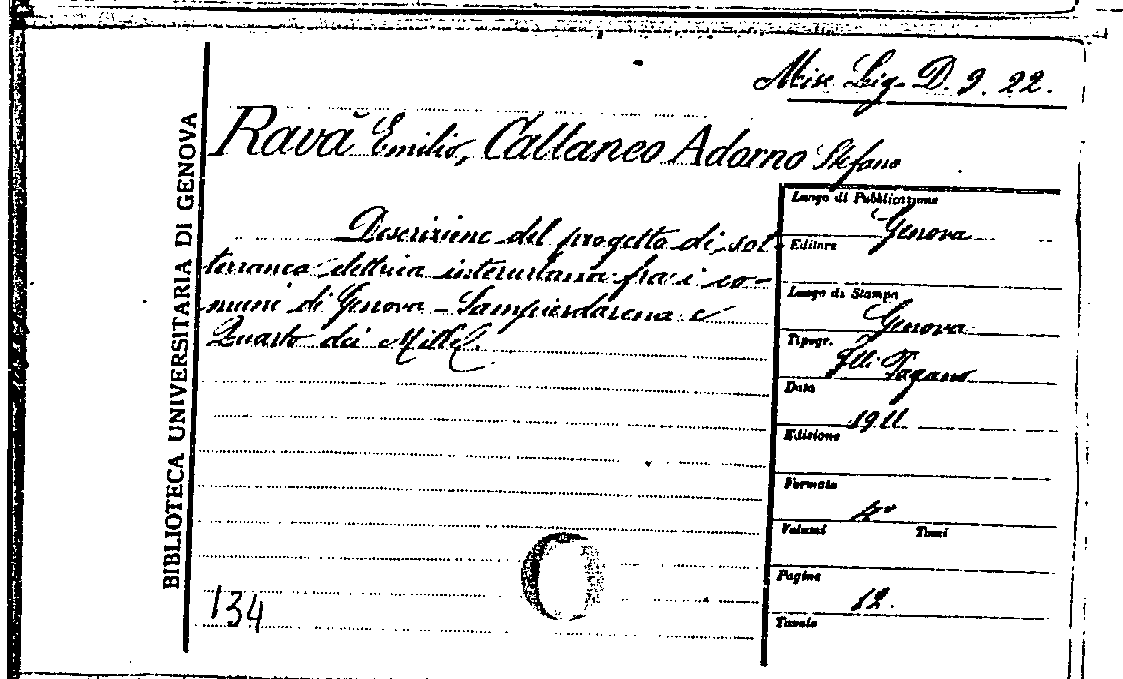 Misc. Lig. D. 9. 22.
Ravà Emilio, Cattaneo Adorno Stefano
BIBLIOTECA UNIVERSITARIA DI GENOVA
Descrizione del progetto di sot-
terranea elettrica interurbana fra i co-
muni di Genova - Sampierdarena e
Quarto dei Mille.
134
Luogo di Pubblicazione
Genova
Editore
Luogo di Stampa
Genova
Tipogr.
F.lli Pagano
Data
1911
Edizione
Formato
4°
Volumi Tomi
Pagine
12.
Tavole